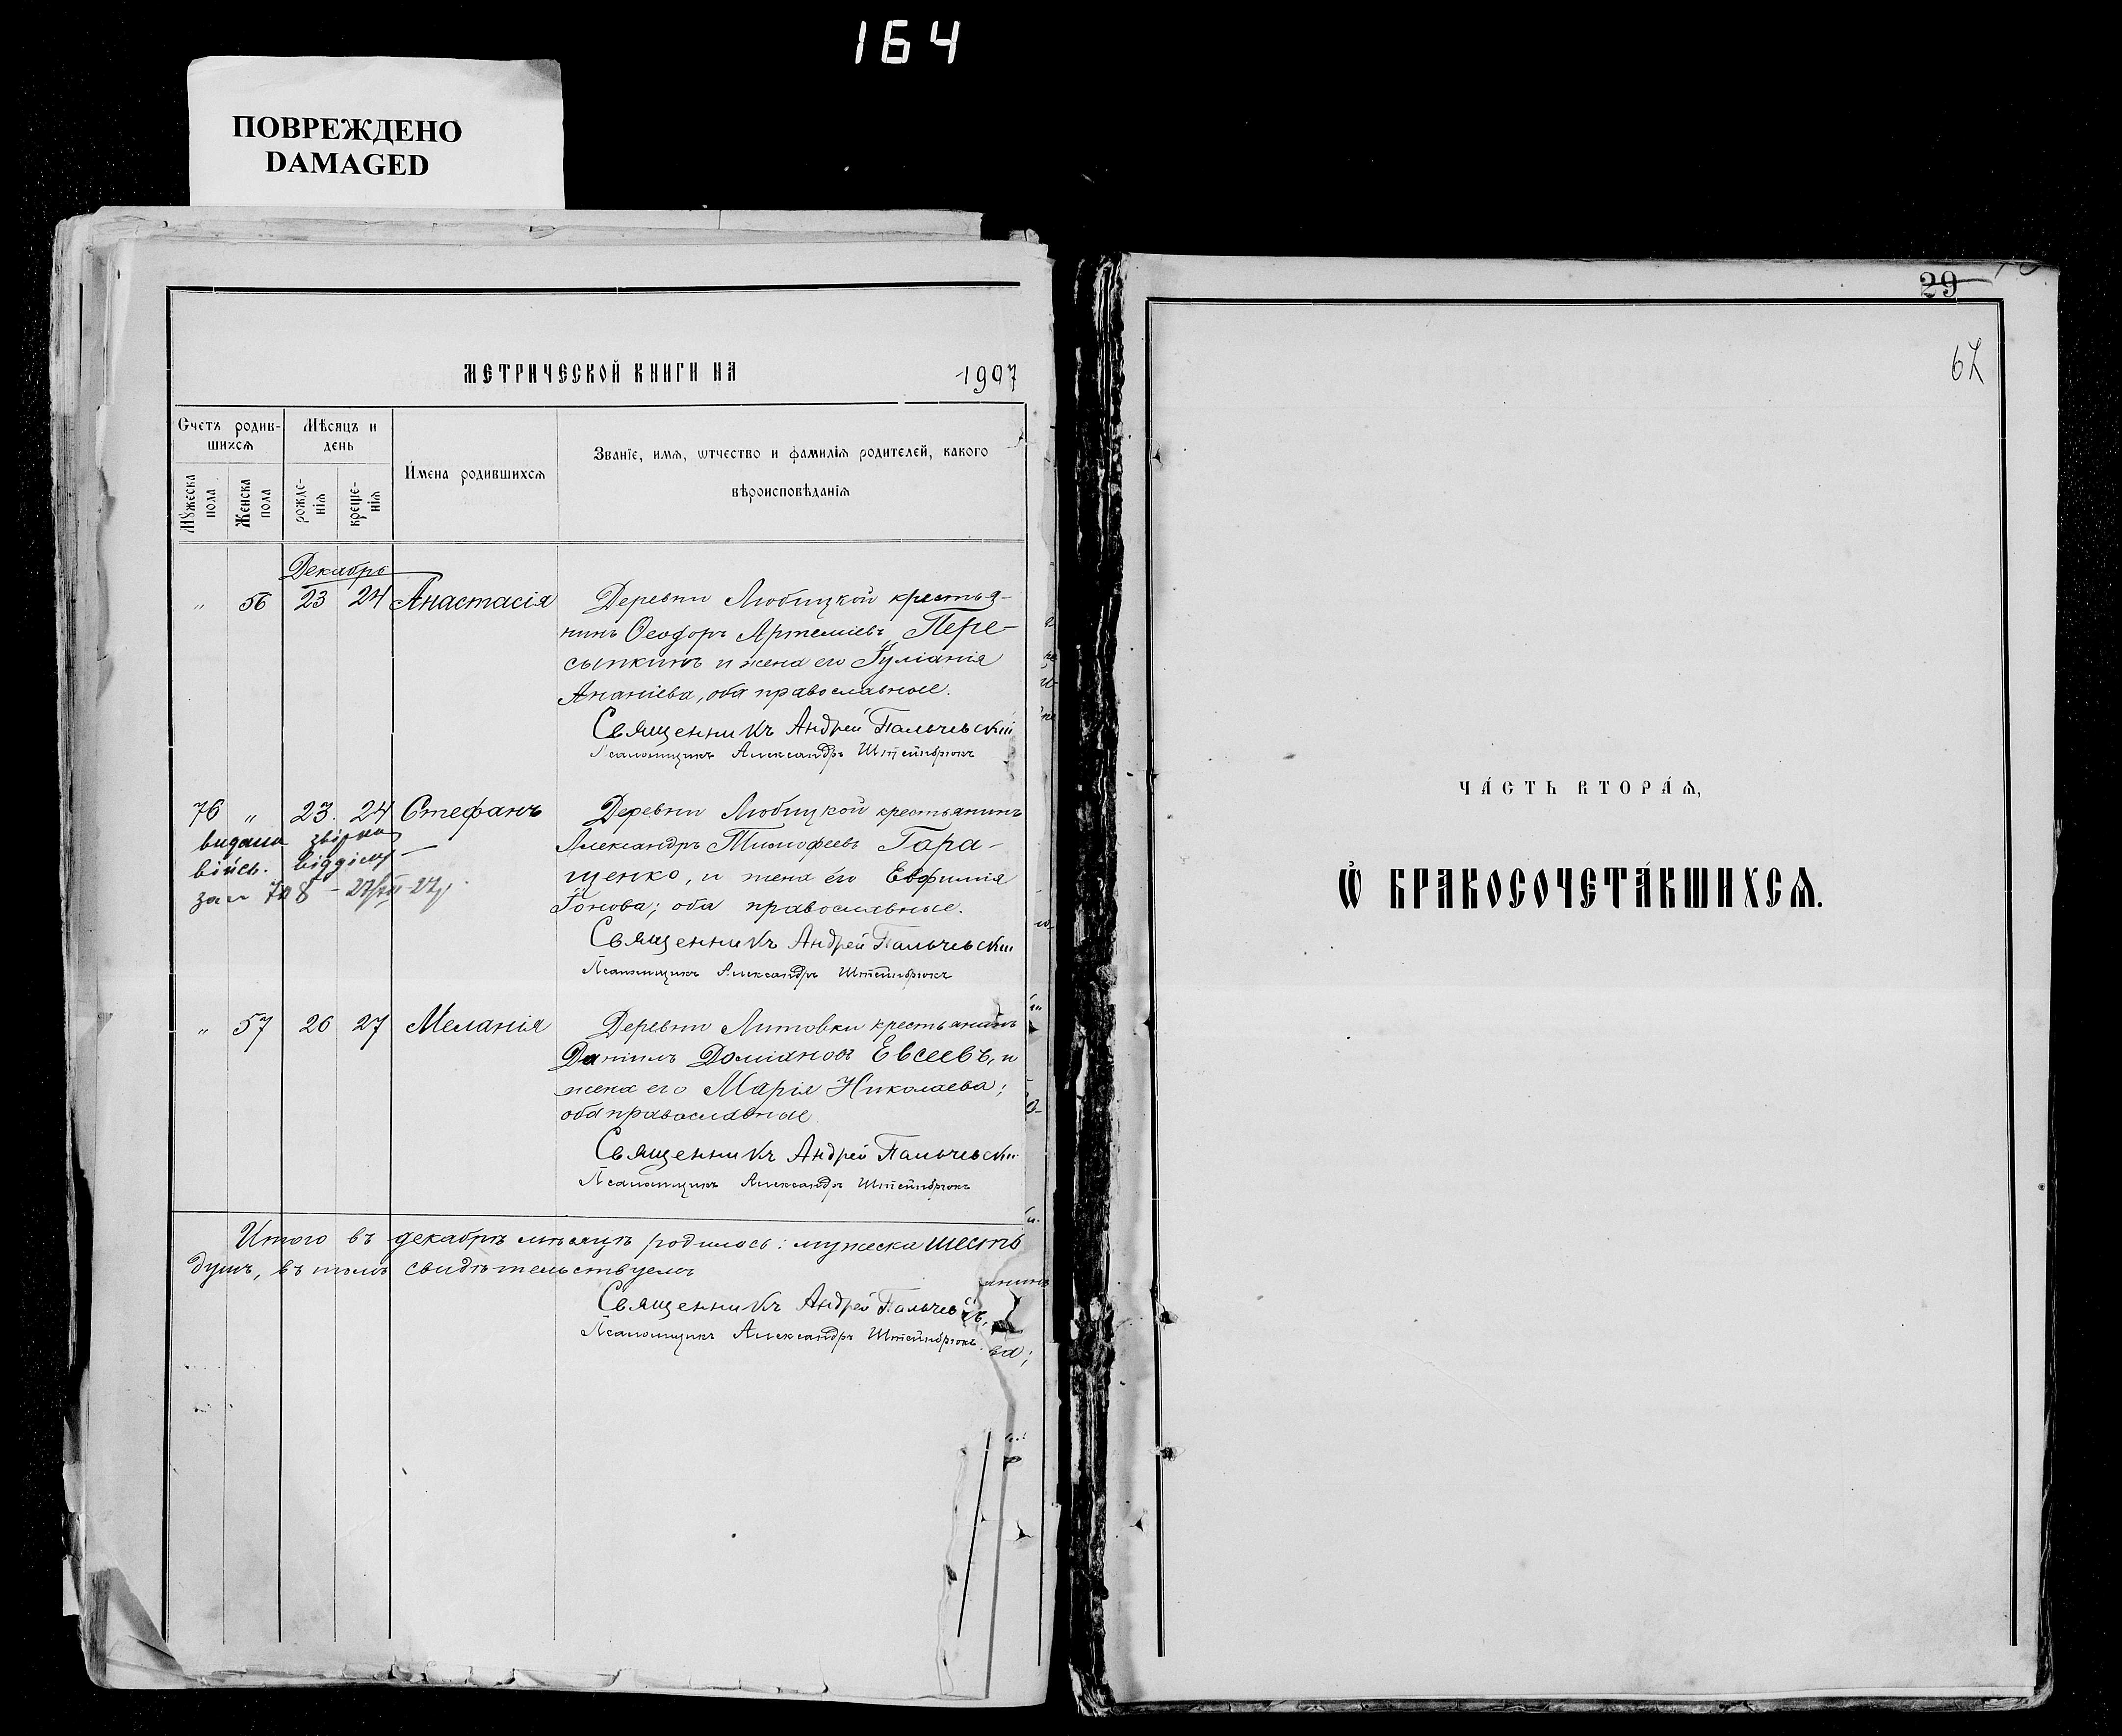 164
ПОВРЕЖДЕНО
DAMAGED
МЕТРИЧЕСКОЙ КНИГИ НА 1907
Счетъ родив-
шихсѧ
Мѣсяцъ и
день
Мꙋжеска
пола
Женска
пола
рожде-
нїѧ
креще-
нїѧ
Имена родившихсѧ
Званїе, имѧ, ѡтчество и фамилїѧ родителей, какого
вѣроисповѣданїѧ
Декабрь
" 56 23 24 Анастасія Деревни Любицкой крестья-
нинъ Ѳеодоръ Артеміевъ Пере-
сыпкинъ и жена его Іуліанія
Ананіева, оба православные.
Священникъ Андрей Пальчевскій
Псаломщикъ Александръ Штейнбрюкъ
76 " 23 24 Стефанъ Деревни Любицкой крестьянинъ
видана звірка
Александръ Тимофеевъ Гара-
війсь. відділу
щенко, и жена его Евфимія
708 - 27/VII-27р.
Іонова; оба православные.
Священникъ Андрей Пальчевскій
Псаломщикъ Александръ Штейнбрюкъ
" 57 26 27 Меланія Деревни Литовки крестьянинъ
Даніилъ Доміановъ Евсеевъ, и
жена его Марія Николаева;
оба православные.
Священникъ Андрей Пальчевскій
Псаломщикъ Александръ Штейнбрюкъ
Итого въ декабрѣ мѣсяцѣ родилось: мужеска шесть
душъ, въ томъ свидѣтельствуемъ
Священникъ Андрей Пальчевс
Псаломщикъ Александръ Штейнбрюкъ
ва;
29
67
ЧА́СТЬ ВТОРА́Ѧ,
Ѽ БРАКОСОЧЕТА́ВШИХСѦ.